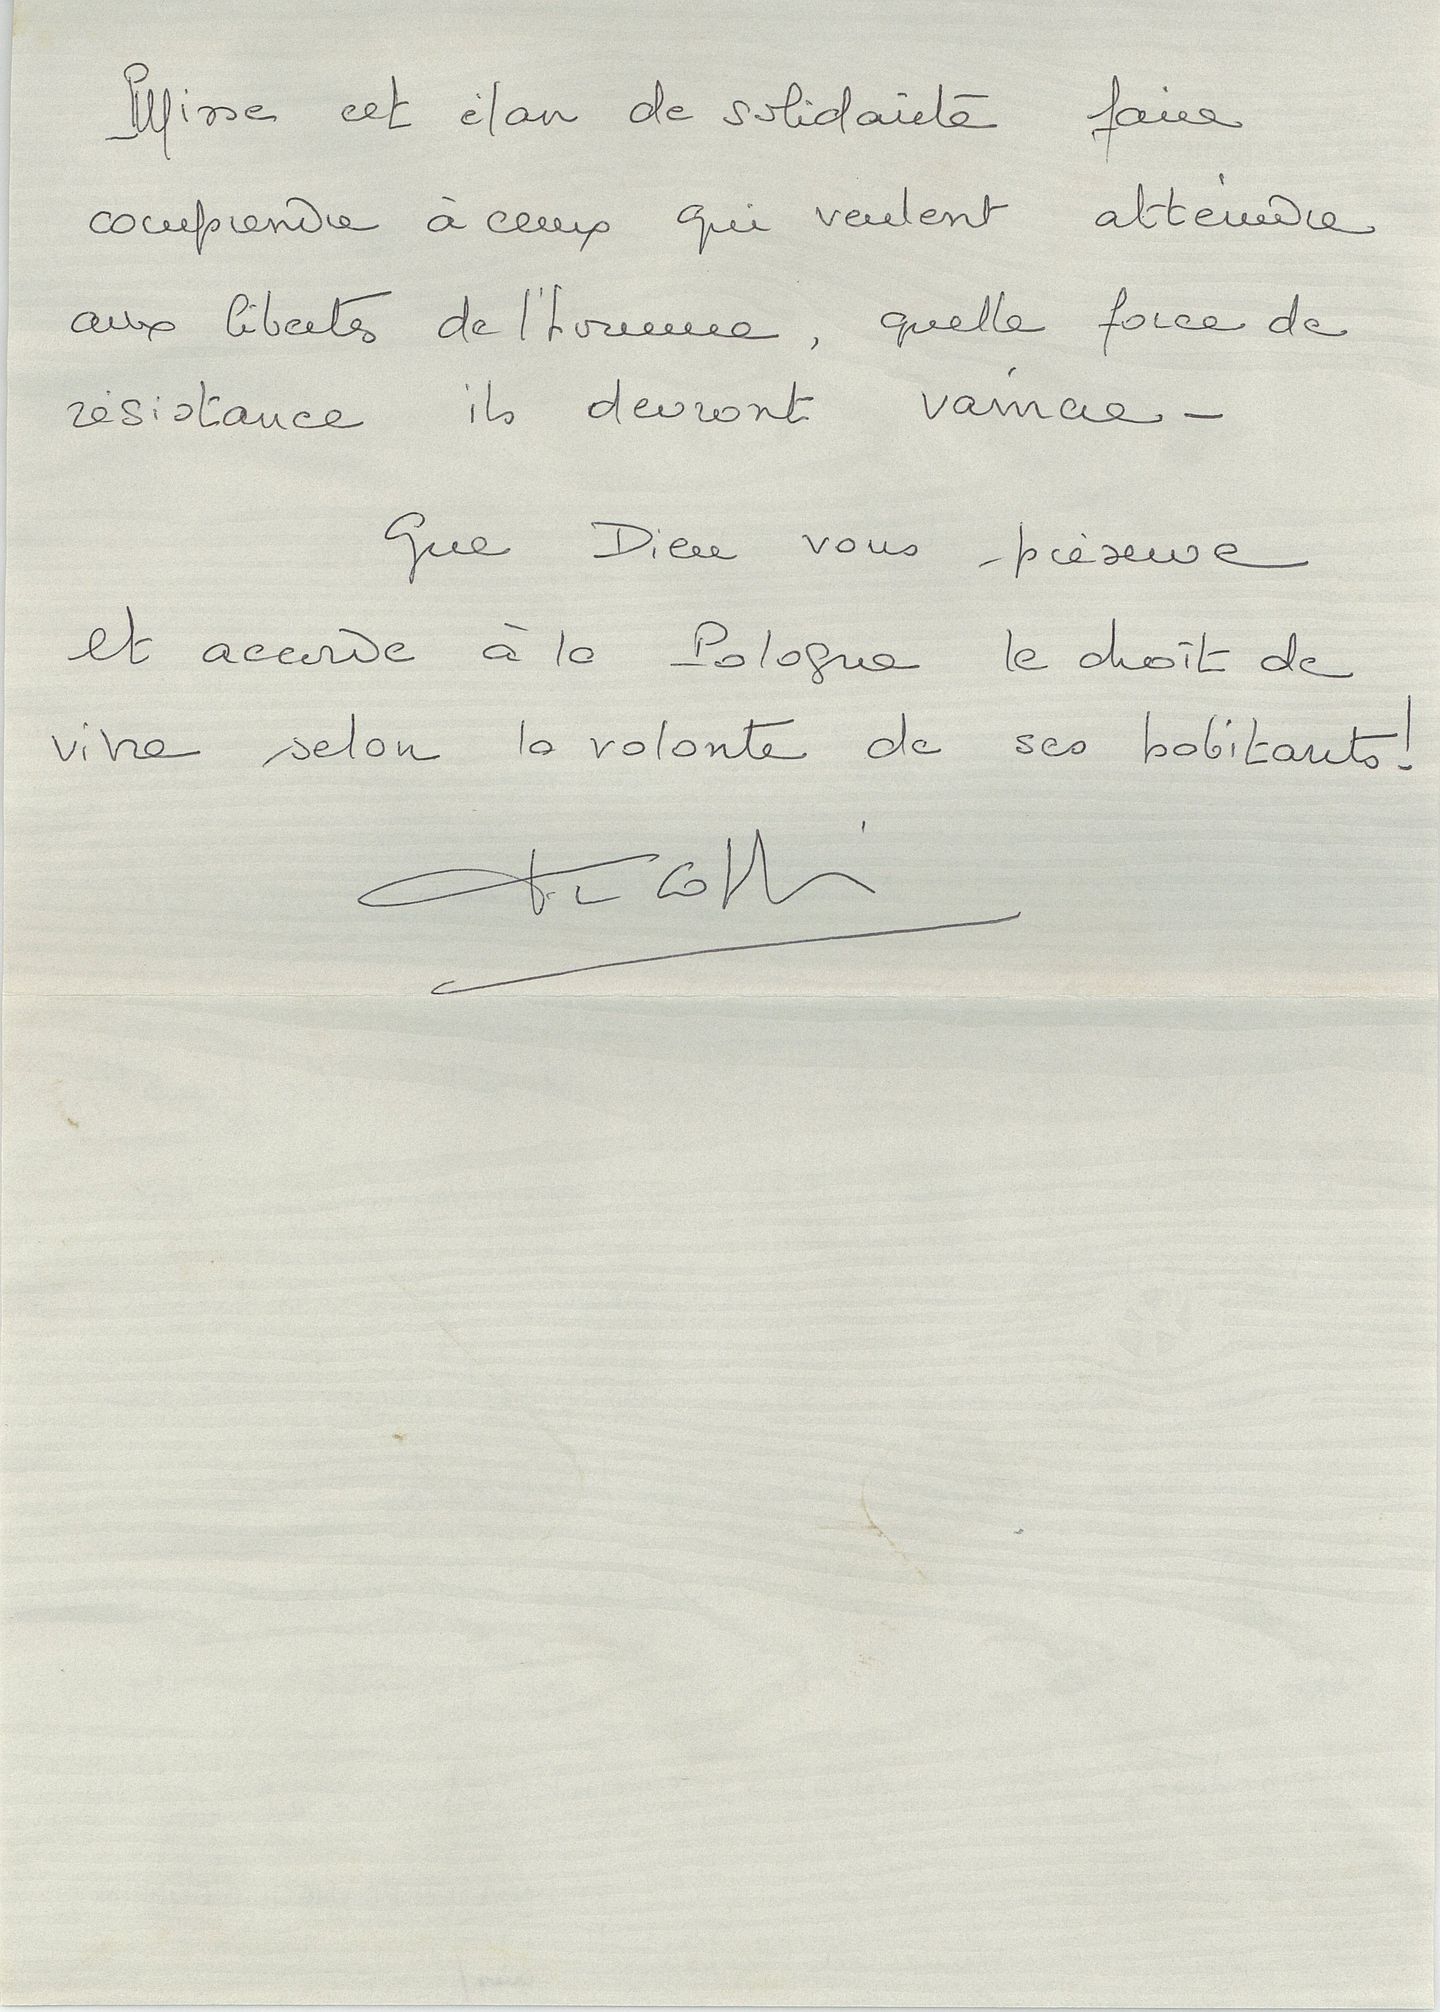 Puisse cet élan de solidarité faire
comprendre à ceux qui veulent atteindre
aux libertés de l'homme, quelle force de
résistance ils devront vaincre -
Que Dieu vous préserve
et accorde à la Pologne le droit de
vivre selon la volonté de ses habitants!